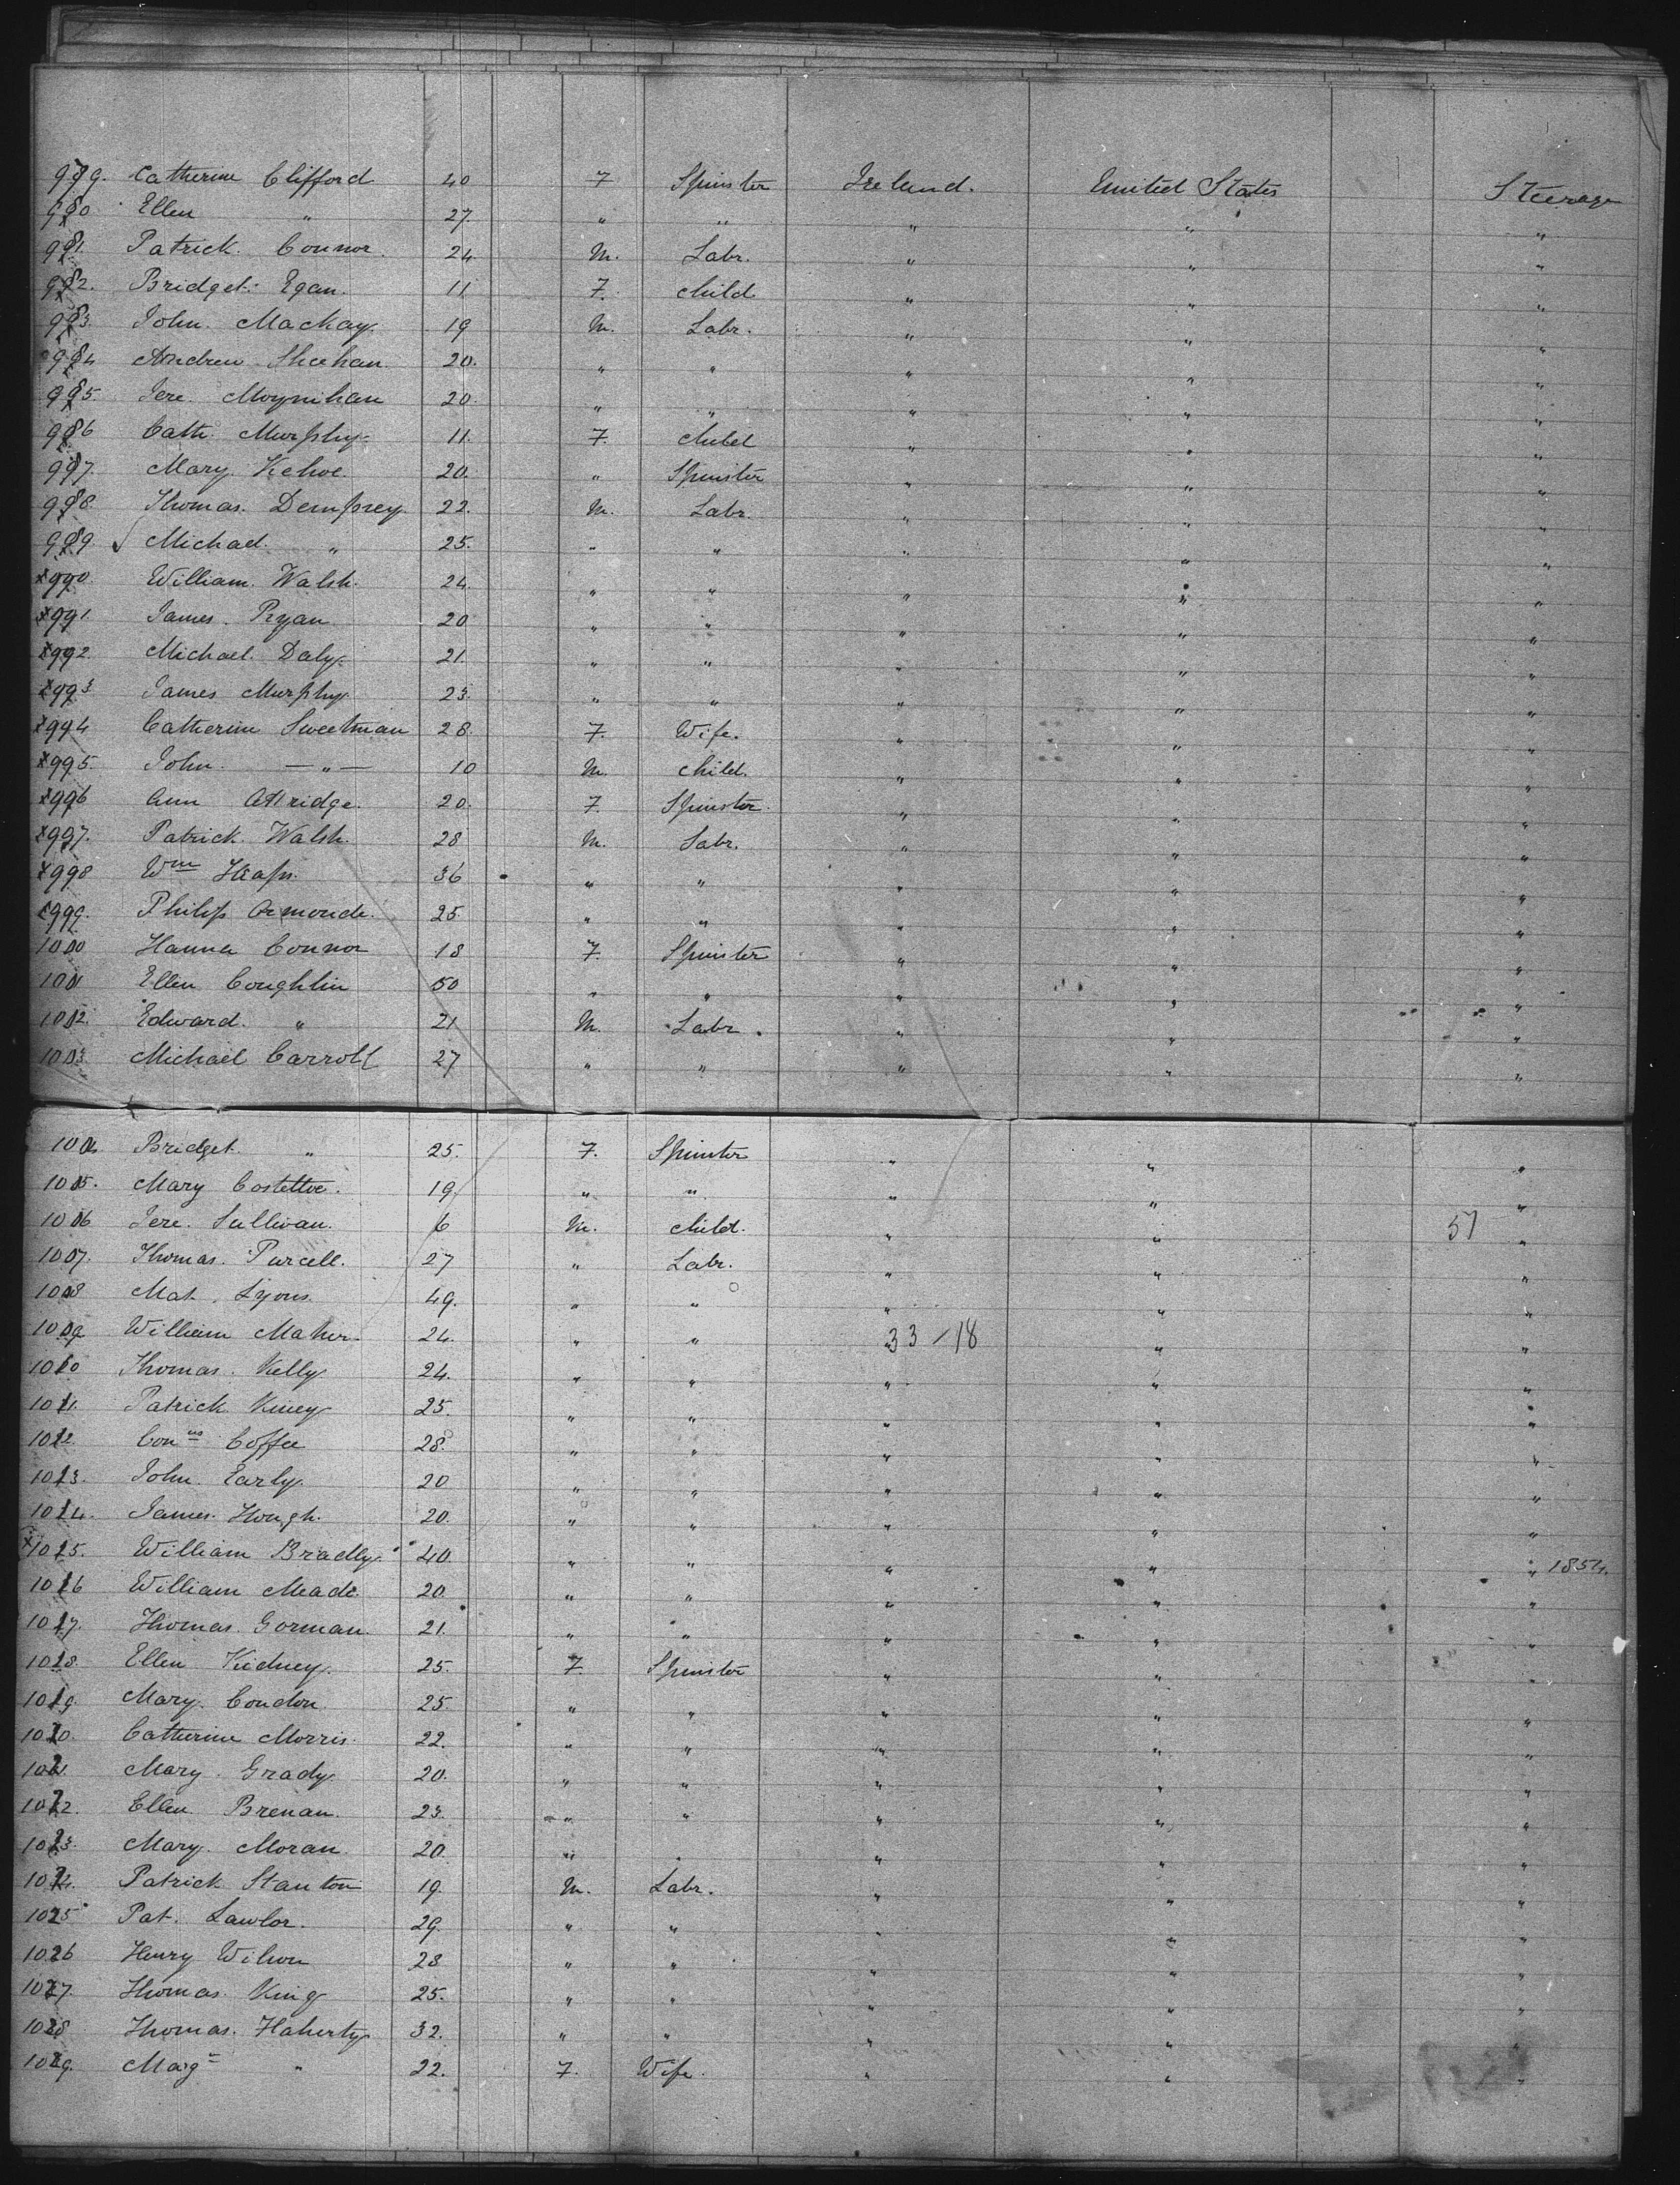 979. Catherine Clifford 40 F Spinster Ireland. United States Steerage
980 Ellen " 27. " " " " "
981. Patrick Connor 24. M. Labr. " " "
982. Bridget Egan. 11 F. child " " "
983. John Mackay. 19 M. Labr. " " "
984 Andrew Sheehan 20. " " " " "
985 Jere. Moynihan 20. " " " " "
986 Cath. Murphy. 11. F. child " " "
987. Mary Kehoe. 20. " Spinster " " "
988. Thomas. Dempsey. 22. M. Labr. " " "
989. √ Michael. " 25. " " " " "
x990. William Walsh. 24. " " " " "
x991. James. Ryan 20 " " " " "
x992. Michael Daly. 21. " " " " "
x993 James Murphy. 23. " " " " "
x994 Catherine Sweetman 28. F. Wife. " " "
x995. John — " — 10 M. child. " " "
x996 Ann Attridge. 20. F. Spinster. " " "
x997. Patrick Walsh. 28 M. Labr. " " "
x998 Wm 36 " " " " "
x999. Philip Ormonde. 25. " " " " "
1000 Hanna Connor 18 F. Spinster " " "
1001 Ellen Coughlin 50 " " " " "
1002. Edward. " 21 M. Labr. " " "
1003. Michael Carroll 27 " " " " "
1004 Bridget " 25. F. Spinster " " "
1005. Mary Costelloe. 19. " " " " "
1006 Jere. Sullivan. 6 M. child. " " 57 "
1007. Thomas. Purcell. 27 " Labr. " " "
1008 Mat. Lyons. 49. " " " " "
1009 William Maher. 24. " " " 33-/18 " "
1010 Thomas. Kelly 24. " " " " "
1011. Patrick 25. " " " " "
1012. Conus Coffee 28. " " " " "
1013. John Early. 20 " " " " "
1014. James. Hough. 20. " " " " "
x1015. William Bradly. 40. " " " " " 1854.
1016 William Meade. 20. " " " " "
1017. Thomas. Gorman. 21. " " " " "
1018. Ellen Kidney. 25. F. Spinster " " "
1019. Mary. Condon. 25. " " " " "
1020. Catherine Morris. 22. " " " " "
1021. Mary Grady. 20. " " " " "
1022. Ellen Brenan. 23. " " " " "
1023. Mary. Moran 20. " " " " "
1024. Patrick Stanton 19. M. Labr. " " "
1025 Pat. Lawlor. 29. " " " " "
1026 Henry Wilson 28 " " " " "
1027. Thomas King 25. " " " " "
1028 Thomas. Flaherty. 32. " " " " "
1029. Margt " 22. F. Wife. " " "